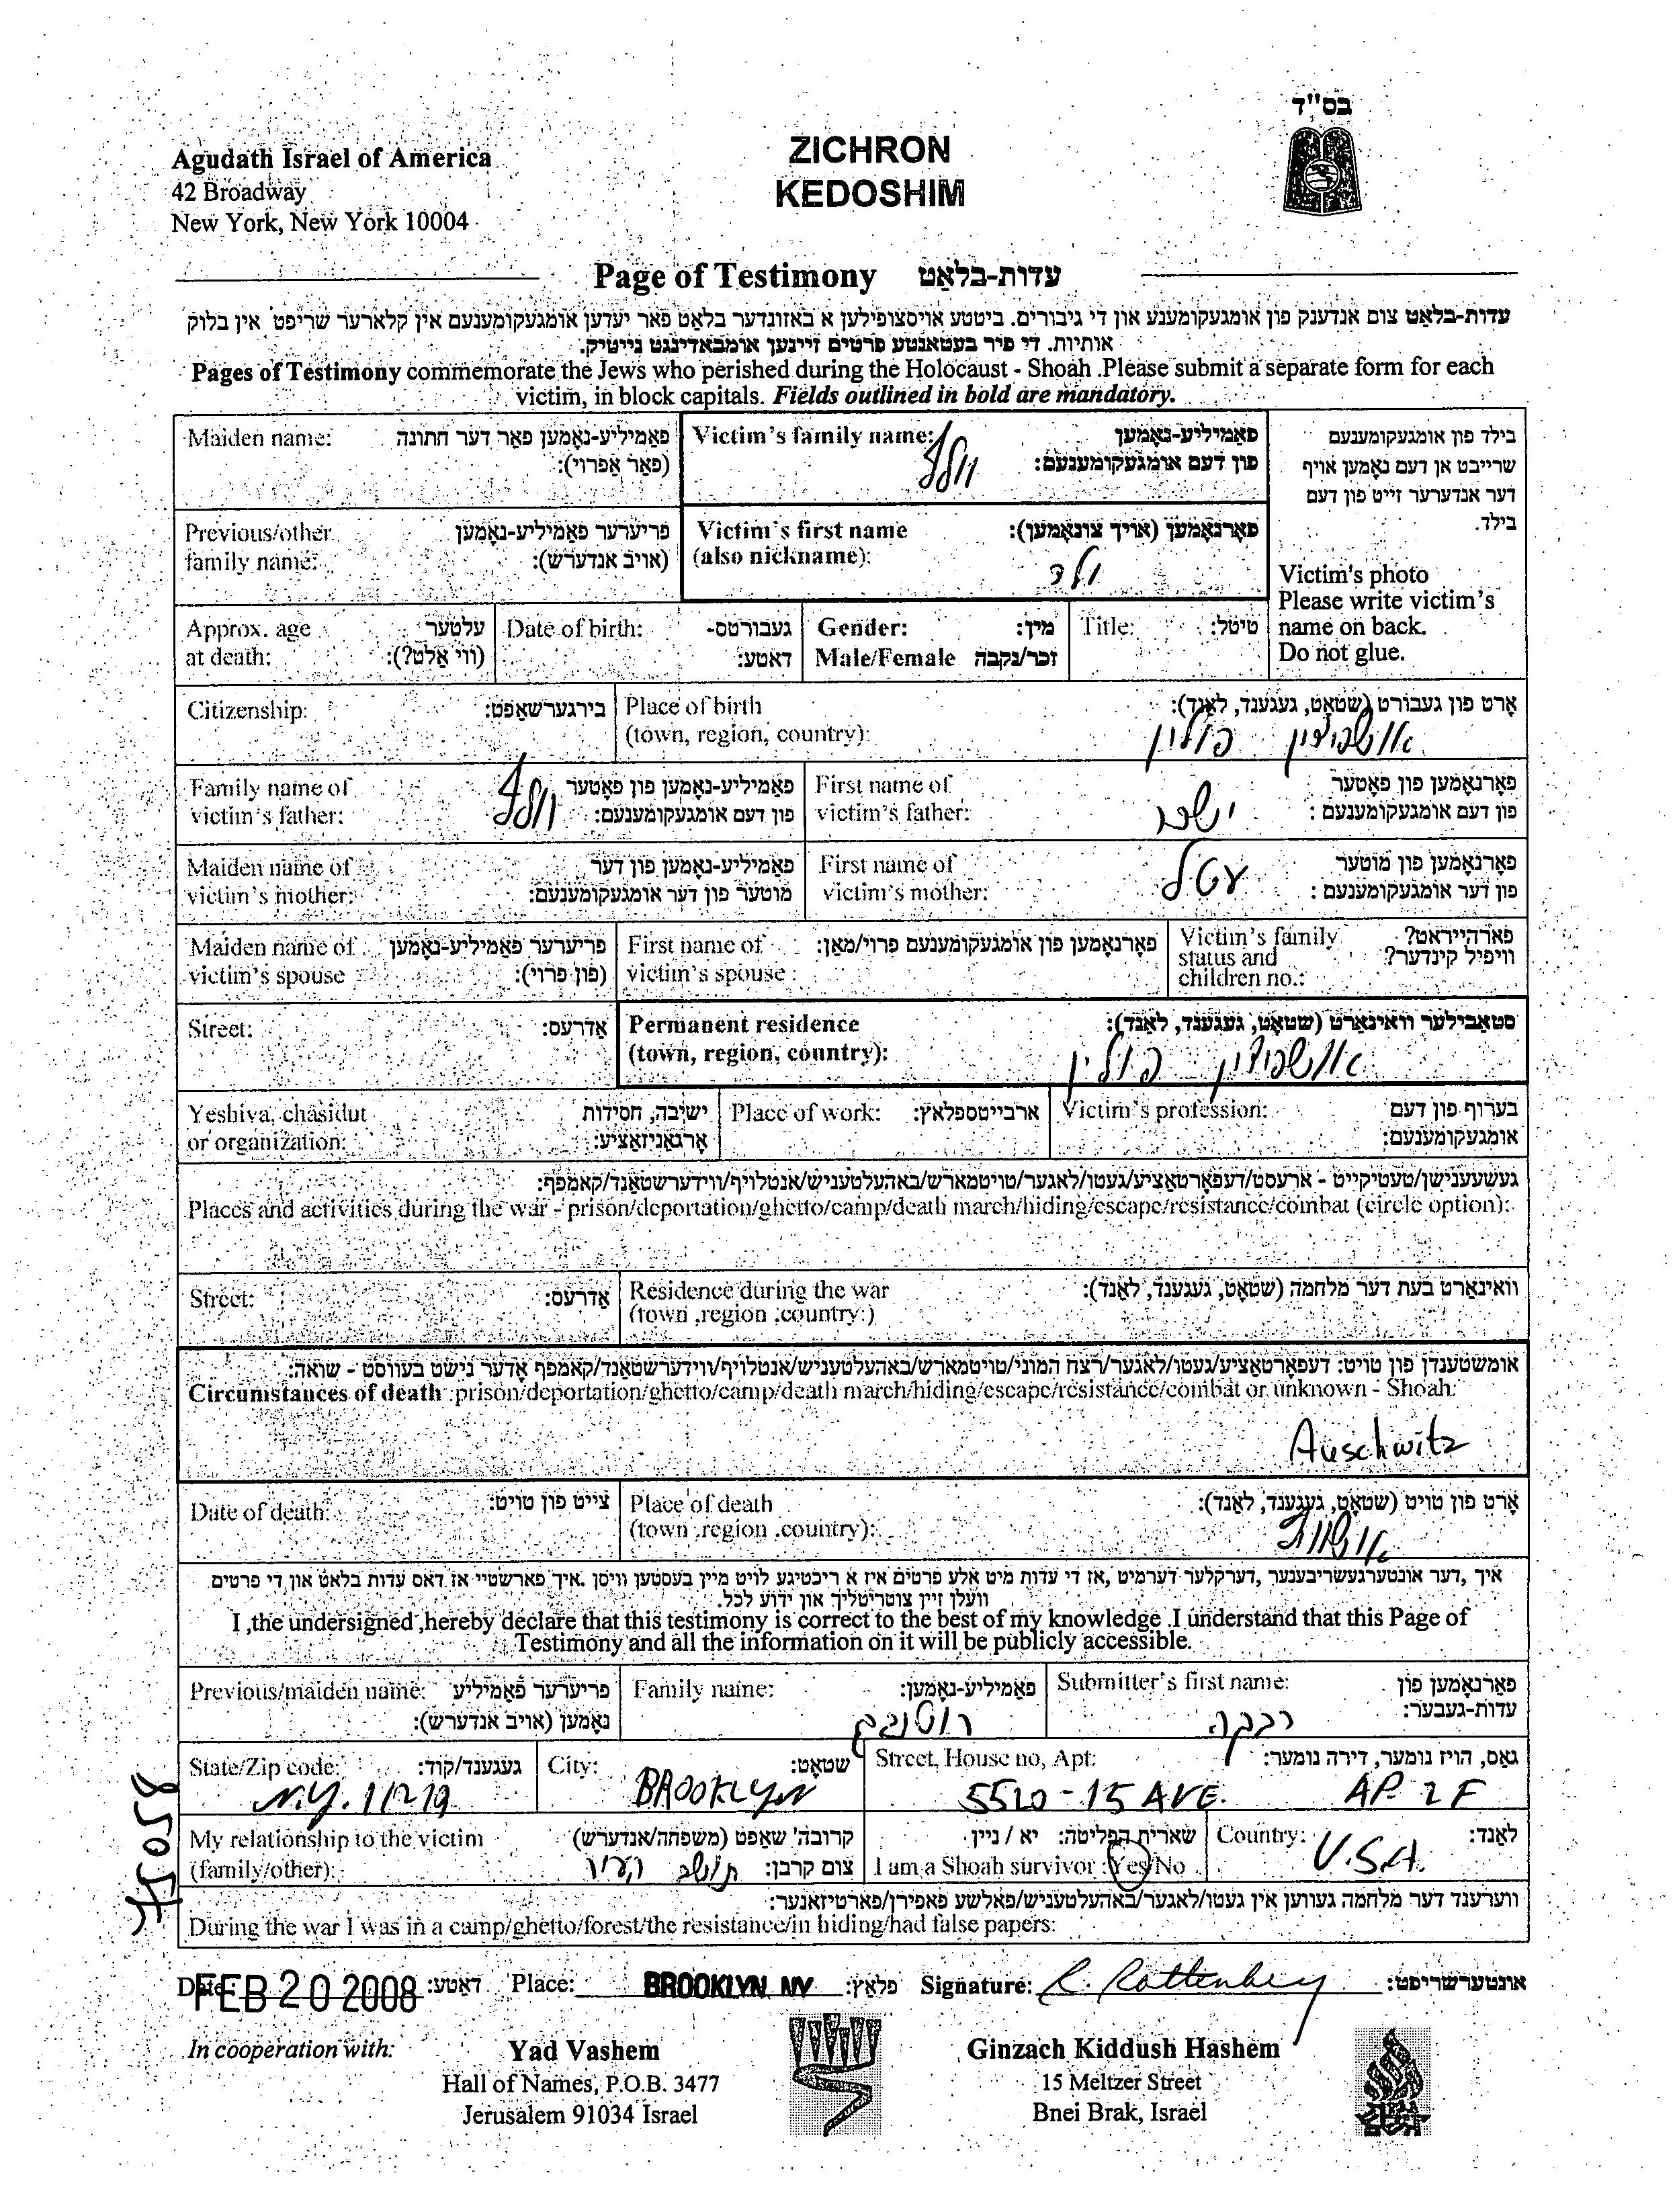 בס"ד
Agudath Israel of America
42 Broadway
New York, New York 10004
ZICHRON
KEDOSHIM
Page of Testimony עדות-בלאַט
עדות-בלאַט צום אנדענק פון אומגעקומענע און די גיבורים. ביטטע אויסצופילען א באזונדער בלאַט פאר יעדען אומגעקומענעם אין קלארער שריפט אין בלוק
אותיות. די פיר בעטאנטע פרטים זיינען אומבאדינגט נייטיק.
Pages of Testimony commemorate the Jews who perished during the Holocaust - Shoah .Please submit a separate form for each
victim, in block capitals. Fields outlined in bold are mandatory.
Maiden name: פאַמיליע-נאָמען פאר דער חתונה
(פאַר אַפרוי):
Victim's family name: פאַמיליע-נאָמען
פון דעם אומגעקומענעם:
וולף
בילד פון אומגעקומענעם
שרייבט אן דעם נאָמען אויף
דער אנדערער זייט פון דעם
בילד.
Victim's photo
Please write victim's
name on back.
Do not glue.
Previous/other פריערער פאַמיליע-נאָמען
family name: (אויב אנדערש):
Victim's first name פאָרנאָמען (אויך צונאָמען):
(also nickname):
ולד
Approx. age עלטער
at death: (ווי אַלט?):
Date of birth: געבורטס-
דאַטע:
Gender: מין:
Male/Female זכר/נקבה
Title: טיטל:
Citizenship: בירגערשאַפט:
Place of birth אָרט פון געבורט (שטאָט, געגענד, לאַנד):
(town, region, country):
אושפיצין פולין
Family name of פאַמיליע-נאָמען פון פאָטער
victim's father: פון דעם אומגעקומענעם:
וולף
First name of פאָרנאָמען פון פאָטער
victim's father: פון דעם אומגעקומענעם :
Maiden name of פאַמיליע-נאָמען פון דער
victim's mother: מוטער פון דער אומגעקומענעם:
First name of פאָרנאָמען פון מוטער
victim's mother: פון דער אומגעקומענעם :
עטל
Maiden name of פריערער פאַמיליע-נאָמען
victim's spouse (פון פרוי):
First name of פאָרנאָמען פון אומגעקומענעם פרוי/מאַן:
victim's spouse :
Victim's family פארהייראט?
status and וויפיל קינדער?
children no.:
Street: אַדרעס:
Permanent residence סטאַבילער וואינאָרט (שטאָט, געגענד, לאַנד):
(town, region, country):
אושפיצין פולין
Yeshiva, chasidut ישיבה, חסידות
or organization: אָרגאַניזאַציע:
Place of work: ארבייטספלאץ:
Victim's profession: בערוף פון דעם
אומגעקומענעם:
געשעענישן/טעטיקייט - ארעסט/דעפּאָרטאַציע/געטו/לאגער/טויטמארש/באהעלטעניש/אנטלויף/ווידערשטאַנד/קאמפף:
Places and activities during the war - prison/deportation/ghetto/camp/death march/hiding/escape/resistance/combat (circle option):
Street: אַדרעס:
Residence during the war וואינאָרט בעת דער מלחמה (שטאָט, געגענד, לאַנד):
(town ,region ,country:)
אומשטענדן פון טויט: דעפּאָרטאַציע/געטו/לאגער/רצח המוני/טויטמארש/באהעלטעניש/אנטלויף/ווידערשטאַנד/קאמפף אָדער נישט בעוווסט - שואה:
Circumstances of death :prison/deportation/ghetto/camp/death march/hiding/escape/resistance/combat or unknown - Shoah:
Auschwitz
Date of death: צייט פון טויט:
Place of death אָרט פון טויט (שטאָט, געגענד, לאַנד):
(town ,region ,country):
איך ,דער אונטערגעשריבענער ,דערקלער דערמיט ,אז די עדות מיט אלע פרטים איז א ריכטיגע לויט מיין בעסטען וויסן .איך פארשטיי אז דאס עדות בלאט און די פרטים
וועלן זיין צוטריטליך און ידוע לכל.
I ,the undersigned ,hereby declare that this testimony is correct to the best of my knowledge .I understand that this Page of
Testimony and all the information on it will be publicly accessible.
Previous/maiden name: פריערער פאַמיליע
נאָמען (אויב אנדערש):
Family name: פאַמיליע-נאָמען:
Submitter's first name: פאָרנאָמען פון
עדות-געבער:
רבקה
State/Zip code: געגענד/קוד:
N.Y. 11219
City: שטאָט:
BROOKLYN
Street, House no, Apt: גאַס, הויז נומער, דירה נומער:
5520-15 AVE. AP. 2F
My relationship to the victim קרובה' שאַפט (משפחה/אנדערש)
(family/other): צום קרבן:
תושב העיר
שארית הפליטה: יא / ניין
I am a Shoah survivor :Yes/No
Country: לאַנד:
U.S.A.
ווערענד דער מלחמה געווען אין געטו/לאגער/באהעלטעניש/פאלשע פאפירן/פארטיזאנער:
During the war I was in a camp/ghetto/forest/the resistance/in hiding/had false papers:
Date: FEB 20 2008 דאַטע: Place: BROOKLYN NY פלאַץ: Signature: R. Rottenberg אונטערשריפט:
In cooperation with:
Yad Vashem
Hall of Names, P.O.B. 3477
Jerusalem 91034 Israel
Ginzach Kiddush Hashem
15 Meltzer Street
Bnei Brak, Israel